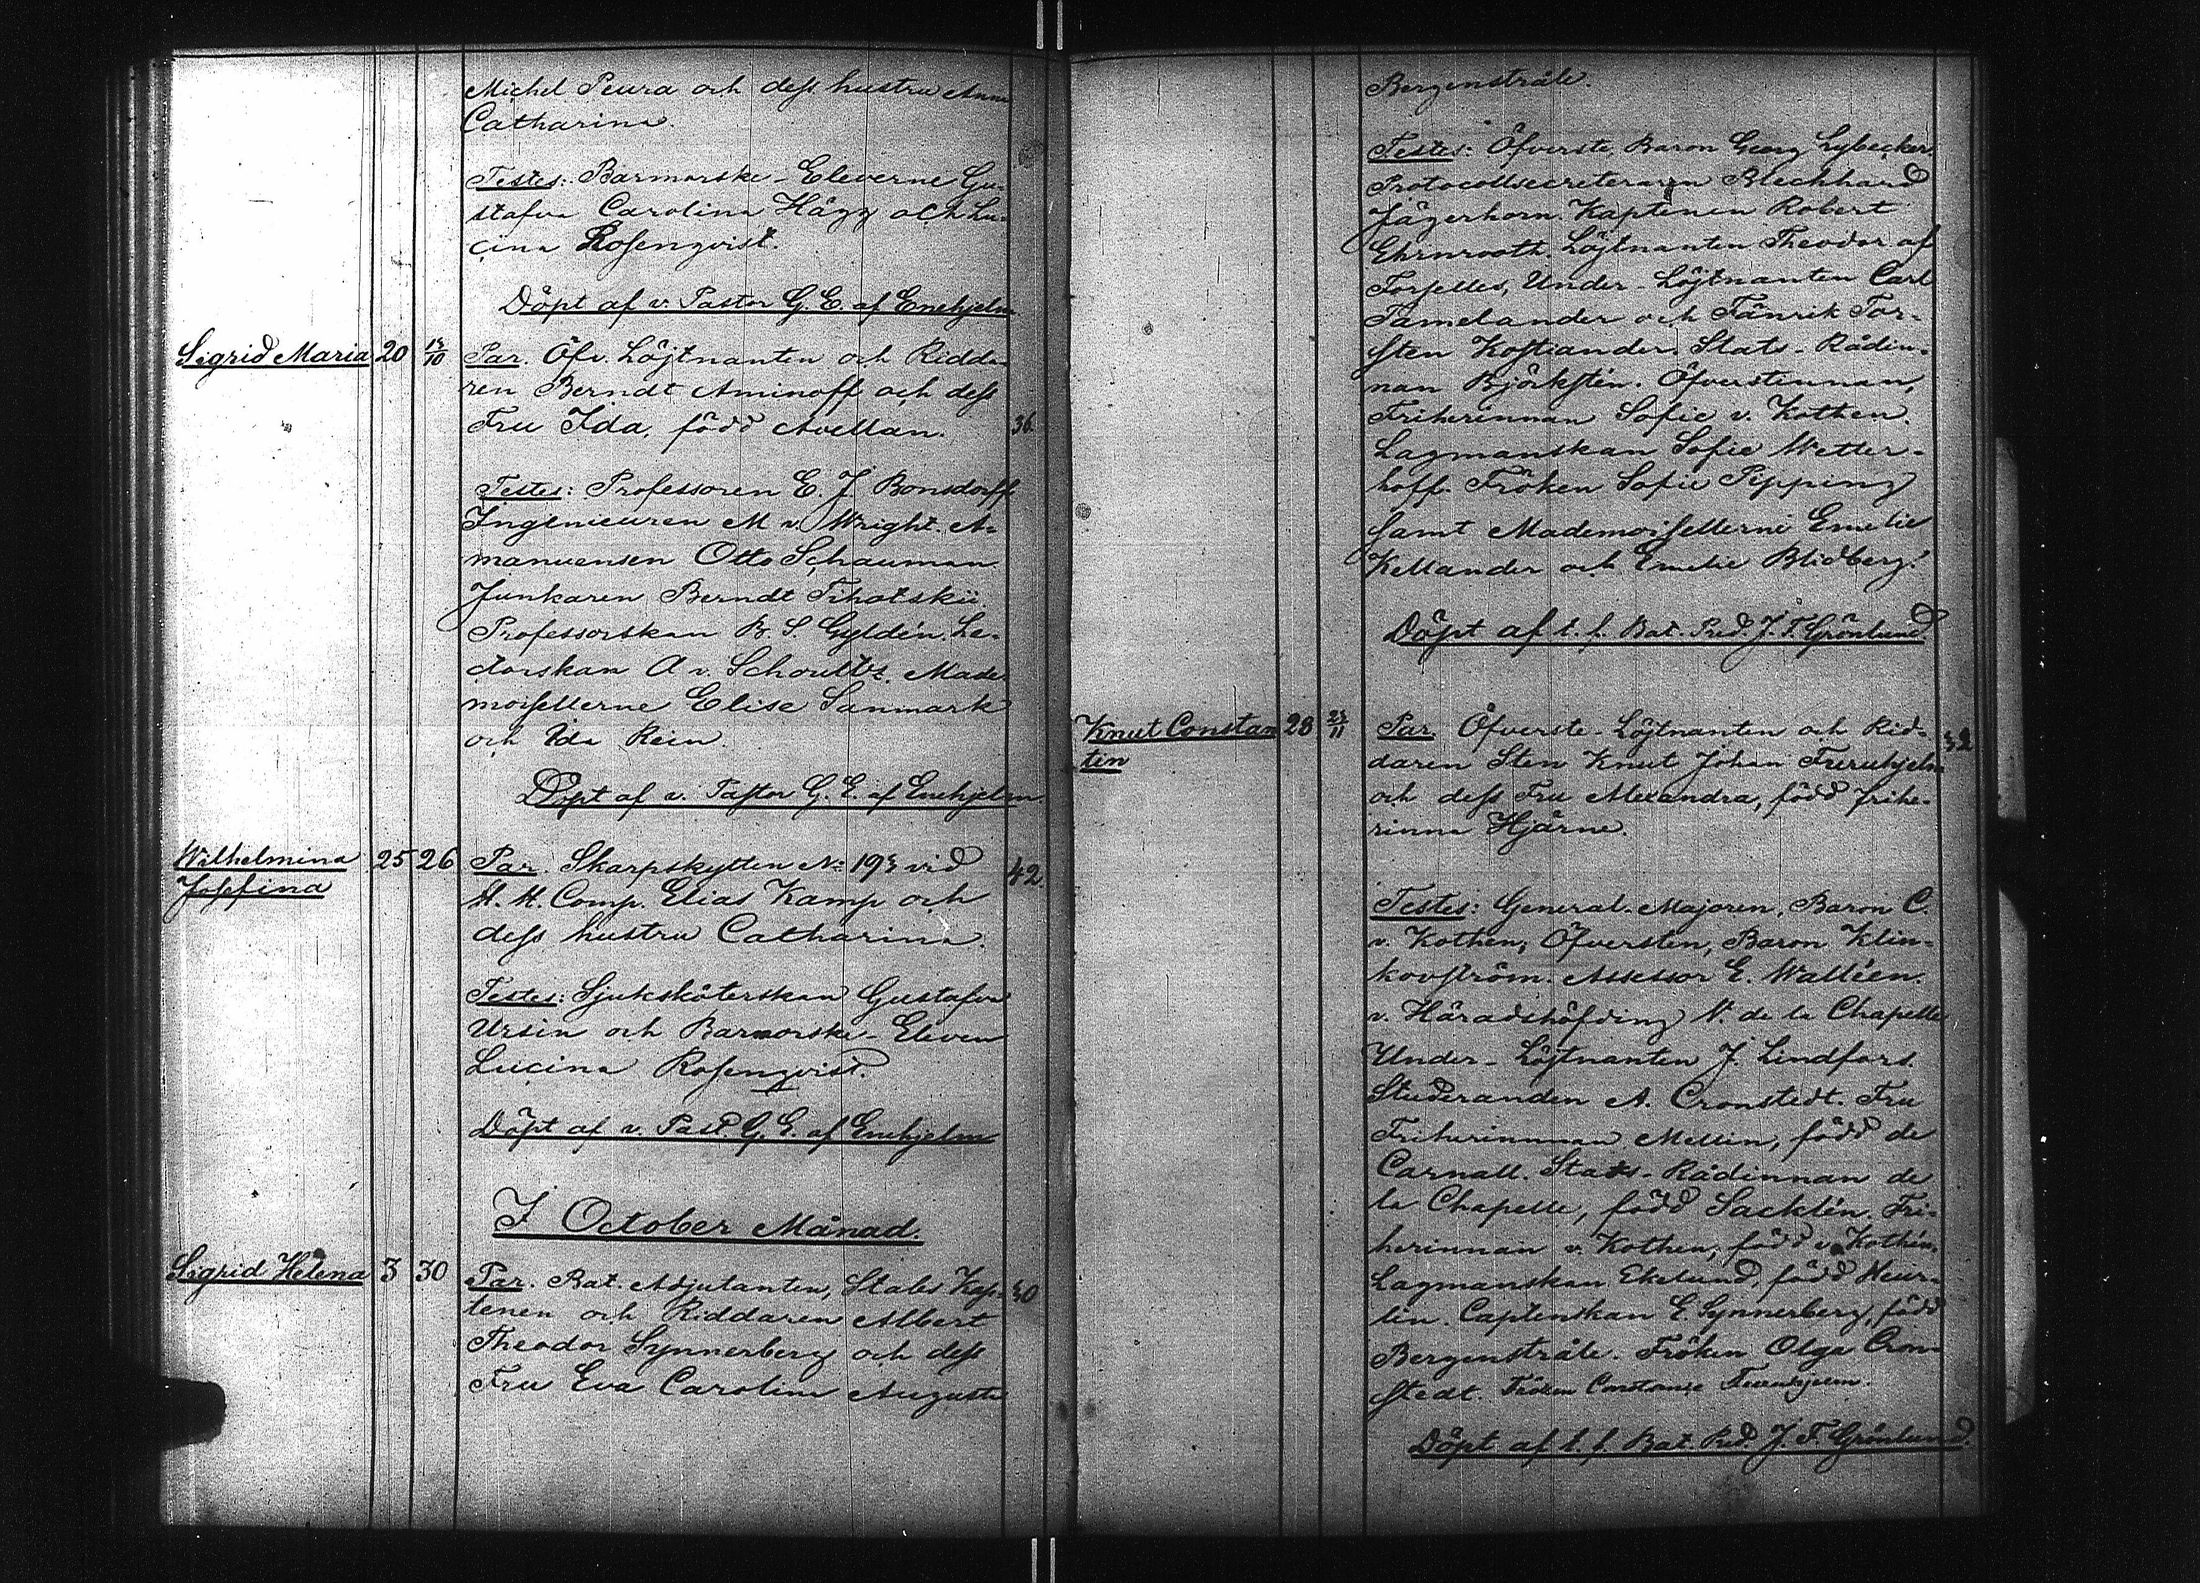 Michel Peura och dess hustru Anna
Catharina.
Testes: Barmorske-Eleverne Gu-
stafva Carolina Hägg och Lu-
cina Rosenqvist.
Döpt af v. Pastor G. E. af Enehjelm
Sigrid Maria 20 12/10 Par. Öfv. Löjtnanten och Ridda-
ren Berndt Aminoff och dess
Fru Ida, född Avellan. 36.
Testes: Professoren E. J Bonsdorff
Ingenieuren M v. Wright. A-
manuensen Otto Schauman
Junkaren Berndt
Professorskan B. S. Gyldén. Le-
ctorskan A v. Schoultz. Made-
moisellerne Elise Sanmark
och Ida Rein.
Döpt af v. Pastor G. E. af Enehjelm.
Wilhelmina 25 26 Par. Skarpskytten No 193 vid 42.
Josefina
Comp. Elias Kamp och
dess hustru Catharina.
Testes: Sjuksköterskan Gustafva
Ursin och Barmorske-Eleven
Lucina Rosenqvist.
Döpt af v. Past. G. E. af Enehjelm
I October Månad.
Sigrid Helena 3 30 Par. Bat. Adjutanten, Stabs Kap- 30
tenen och Riddaren Albert
Theodor Synnerberg och dess
Fru Eva Carolina Augusta
Bergenstråle.
Testes: Öfverste, Baron Georg Lybecker.
Protocollsecreteraren Blechhard
Jägerhorn. Kaptenen Robert
Ehrnrooth. Löjtnanten Theodor af
Forselles, Under-Löjtnanten Carl
Tamelander och Fänrik Tor-
sten Kostiander. Stats-Rådin-
nan Björkstén. Öfverstinnan,
Friherinnan Sofie v. Kothen.
Lagmanskan Sofie Wetter-
hoff. Fröken Sofie Pipping
samt Mademoisellerne Emelie
Kellander och Emelie Blidberg.
Döpt af t. f. Bat. Pred. J. F. Grönlund
Knut Constan 28 23/11 Par. Öfverste-Löjtnanten och Rid- 32
tin
daren Sten Knut Johan Furuhjelm
och dess Fru Alexandra, född frihe-
rinna Hjärne.
Testes: General-Majoren, Baron C.
v. Kothen, Öfversten, Baron Klin-
kovström. Assessor E. Walléen.
v. Häradshöfding V. de la Chapelle
Under-Löjtnanten J. Lindfors.
Studeranden A. Cronstedt. Fru
Friherinnan Mellin, född de
Carnall. Stats-Rådinnan de
la Chapelle, född Sacklén. Fri-
herinnan v. Kothen, född v. Kothen.
Lagmanskan Ekelund, född Heur-
lin. Captenskan E. Synnerberg, född
Bergenstråle. Fröken Olga Cron-
stedt. Fröken Constance Furuhjelm.
Döpt af t. f. Bat. Pred. J. F. Grönlund.